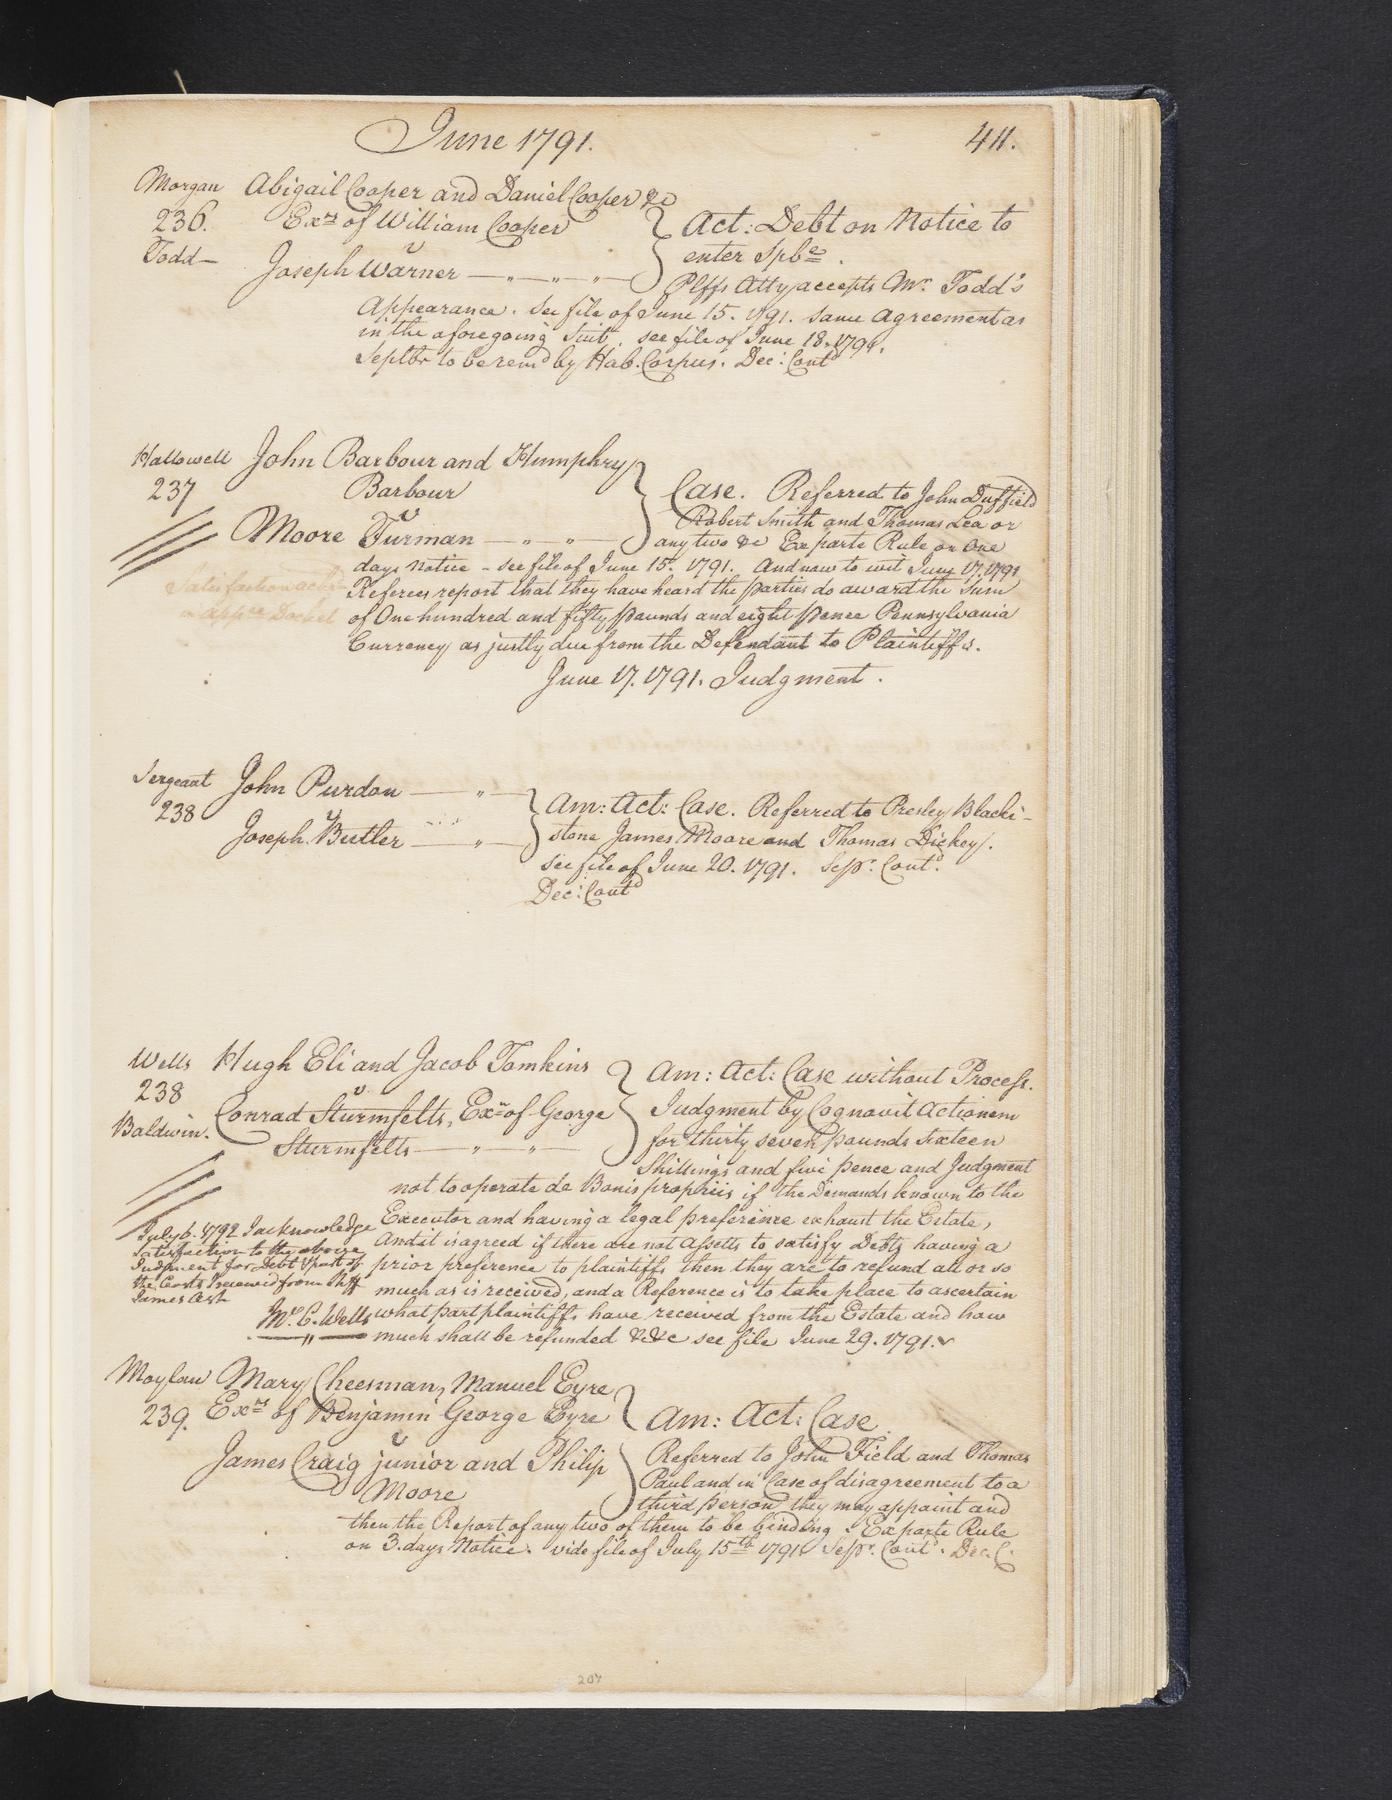 June 1791. 411.
Morgan Abigail Cooper and Daniel Cooper &c
236. Exrs of William Cooper
v
Todd— Joseph Warner — „ — „ — „ —
Act: Debt on Notice to
enter Spl be.
Plffs Atty accepts Mr. Todd's
Appearance. See file of June 15. 1791. same agreement as
in the aforegoing Suit. see file of June 18. 1791.
Septbr to be remd by Hab. Corpus. Dec: Contd
Hallowell John Barbour and Humphry
237 Barbour
v
Moore Furman — „ — „ —
Case. Referred to John Duffield
Robert Smith and Thomas Lea or
any two &c Ex parte Rule on One
days notice - see file of June 15. 1791. And now to wit June 17. 1791
Referees report that they have heard the parties do award the Sum
of One hundred and fifty pounds and eight pence Pennsylvania
Currency as justly due from the Defendant to Plaintiffs.
June 17. 1791. Judgment.
Satisfaction ackd
in appce Docket
Sergeant John Purdon — „ —
238 v
Joseph Butler — „ —
Am: Act: Case. Referred to Presley Blacki-
stone James Moore and Thomas Dickey.
see file of June 20. 1791. Sepr. Contd.
Dec: Contd
Wells Hugh Eli and Jacob Tomkins
238 v
Conrad Sturmfelts, Exr of George
Baldwin. Sturmfelts — „ — „ —
Am: Act: Case without Process.
Judgment by Cognovit Actionem
for thirty seven pounds sixteen
Shillings and five pence and Judgment
not to operate de Bonis propriis if the Demands known to the
Executor and having a legal preference exhaust the Estate,
And it is agreed if there are not Assetts to satisfy Debts having a
prior preference to plaintiffs then they are to refund all or so
much as is received, and a Reference is to take place to ascertain
what part plaintiffs have received from the Estate and how
much shall be refunded &c &c see file June 29. 1791.
July 6. 1792 I acknowledge
Satisfaction to the above
Judgment for Debt & part of
the Costs received from Shff
James Ash
Mr. C. Wells
— „ —
Moylan Mary Cheesman, Manuel Eyre
239. Exrs of Benjamin George Eyre
v
James Craig junior and Philip
Moore
Am: Act: Case.
Referred to John Field and Thomas
Paul and in Case of disagreement to a
third person they may appoint and
then the Report of any two of them to be binding. Ex parte Rule
on 3. days Notice. vide file of July 15th 1791. Sepr. Contd. Dec. C.
207